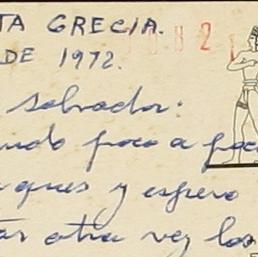 TA GRECIA.
DE 1972.
Salvador:
ando poco a poc
ques y espero
tar otra vez los